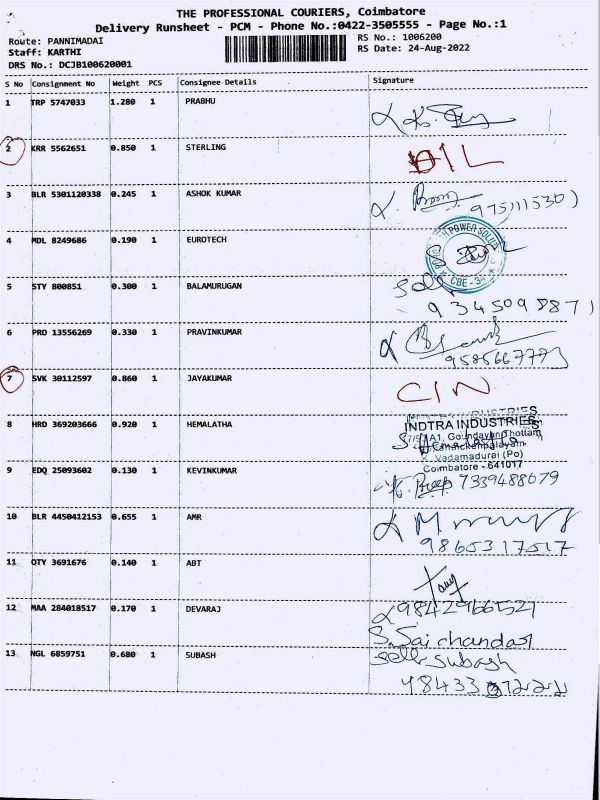 THE PROFESSIONAL COURIERS, Coimbatore
Delivery Runsheet - PCM - Phone No.:0422-3505555 - Page No.:1
Route: PANNIMADAI
Staff: KARTHI
DRS No.: DCJB100620001
RS No.: 1006200
RS Date: 24-Aug-2022
S No Consignment No Weight PCS Consignee Details Signature
1 TRP 5747033 1.280 1 PRABHU
2 KRR 5562651 0.850 1 STERLING
3 BLR 5301120338 0.245 1 ASHOK KUMAR
4 MDL 8249686 0.190 1 EUROTECH
POWER SOLU
CBE - 34
5 STY 800851 0.300 1 BALAMURUGAN
9345098871
6 PRO 13556269 0.330 1 PRAVINKUMAR
7 SVK 30112597 0.860 1 JAYAKUMAR
CIN
8 HRD 369203666 0.920 1 HEMALATHA
INDTRA INDUSTRIES
Vadamadurai (Po)
Coimbatore - 641017
9 EDQ 25093602 0.130 1 KEVINKUMAR
7339488679
10 BLR 4450412153 0.655 1 AMR
9865317517
11 OTY 3691676 0.140 1 ABT
12 MAA 284018517 0.170 1 DEVARAJ
S. Sai chandar
13 NGL 6859751 0.680 1 SUBASH
Subash